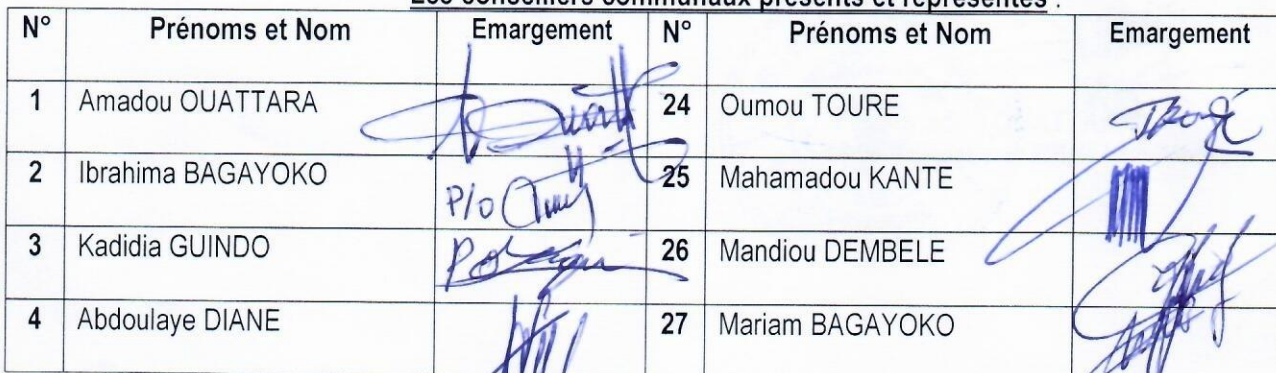 Les conseillers communaux présents et représentés :
N° Prénoms et Nom Emargement N° Prénoms et Nom Emargement
1 Amadou OUATTARA 24 Oumou TOURE
2 Ibrahima BAGAYOKO P/o 25 Mahamadou KANTE
3 Kadidia GUINDO Po 26 Mandiou DEMBELE
4 Abdoulaye DIANE 27 Mariam BAGAYOKO